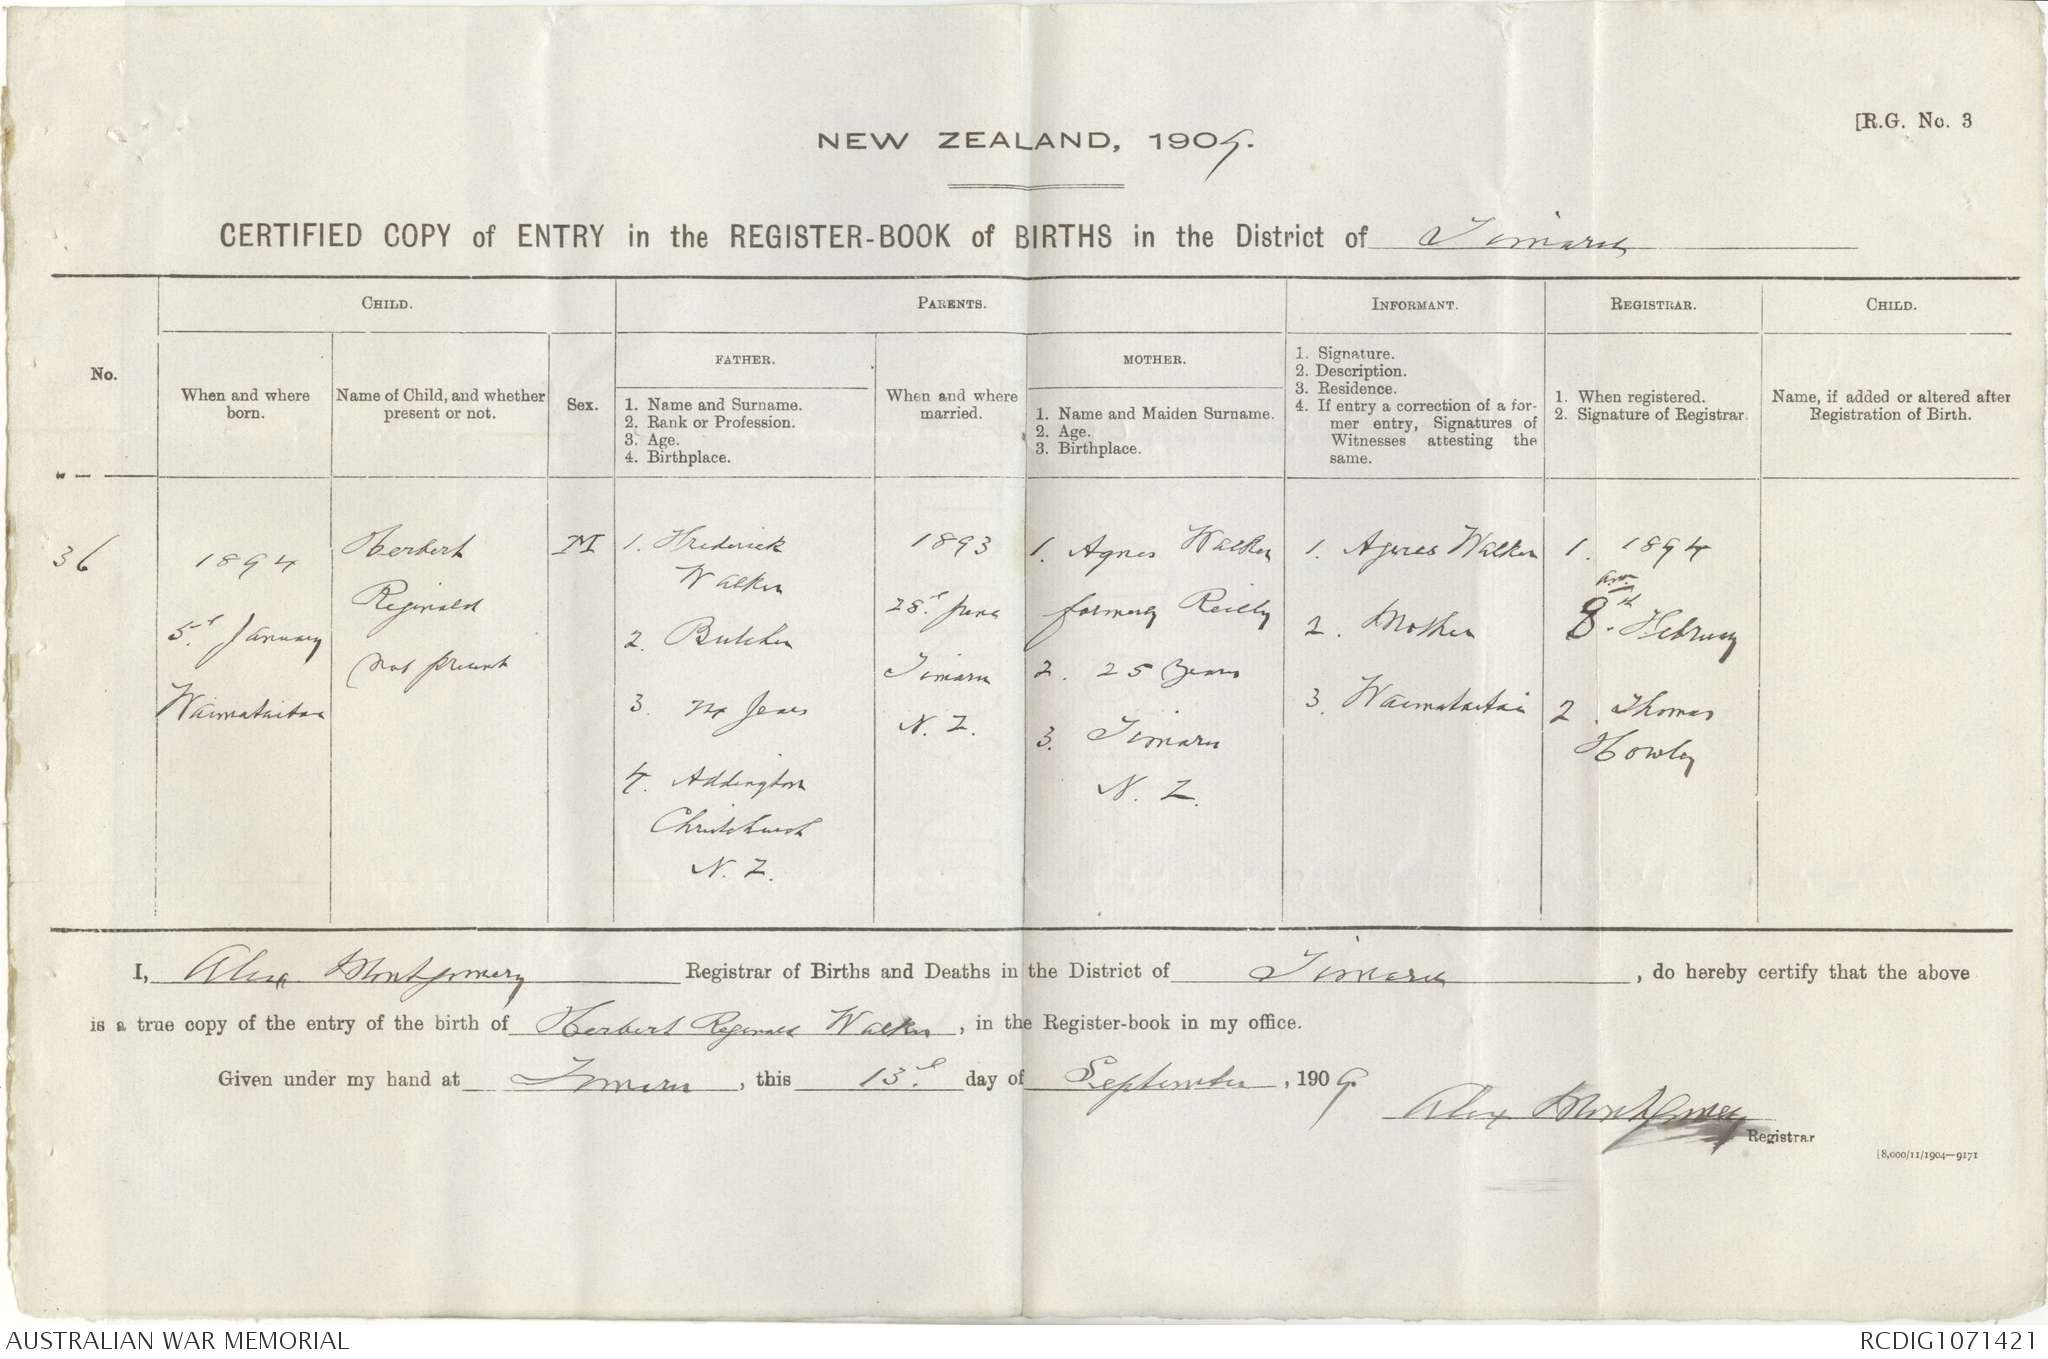 [R.G. No. 3
NEW ZEALAND, 1909.
CERTIFIED COPY of ENTRY in the REGISTER-BOOK of BIRTHS in the District of Timaru
No.
CHILD.
When and where
born.
Name of Child, and whether
present or not.
Sex.
PARENTS.
FATHER.
1. Name and Surname.
2. Rank or Profession.
3. Age.
4. Birthplace.
When and where
married.
MOTHER.
1. Name and Maiden Surname.
2. Age.
3. Birthplace.
INFORMANT.
1. Signature.
2. Description.
3. Residence.
4. If entry a correction of a for-
mer entry, Signatures of
Witnesses attesting the
same.
REGISTRAR.
1. When registered.
2. Signature of Registrar.
CHILD.
Name, if added or altered after
Registration of Birth.
36
1894
5th January
Waimataitai
Herbert
Reginald
not present
M
1. Frederick
Walker
2. Butcher
3. Years
4. Addington
Christchurch
N. Z.
1893
28th June
Timaru
N. Z.
1. Agnes Walker
formerly Reilly
2. 25 Years
3. Timaru
N. Z.
1. Agnes Walker
2. Mother
3. Waimataitai
1. 1894
8th February
2. Thomas
Howley
I, Alex Montgomery Registrar of Births and Deaths in the District of Timaru, do hereby certify that the above
is a true copy of the entry of the birth of Herbert Reginald Walker, in the Register-book in my office.
Given under my hand at Timaru, this 13th day of September, 1909.
Alex Montgomery
Registrar
[8,000/11/1904—9171
AUSTRALIAN WAR MEMORIAL
RCDIG1071421